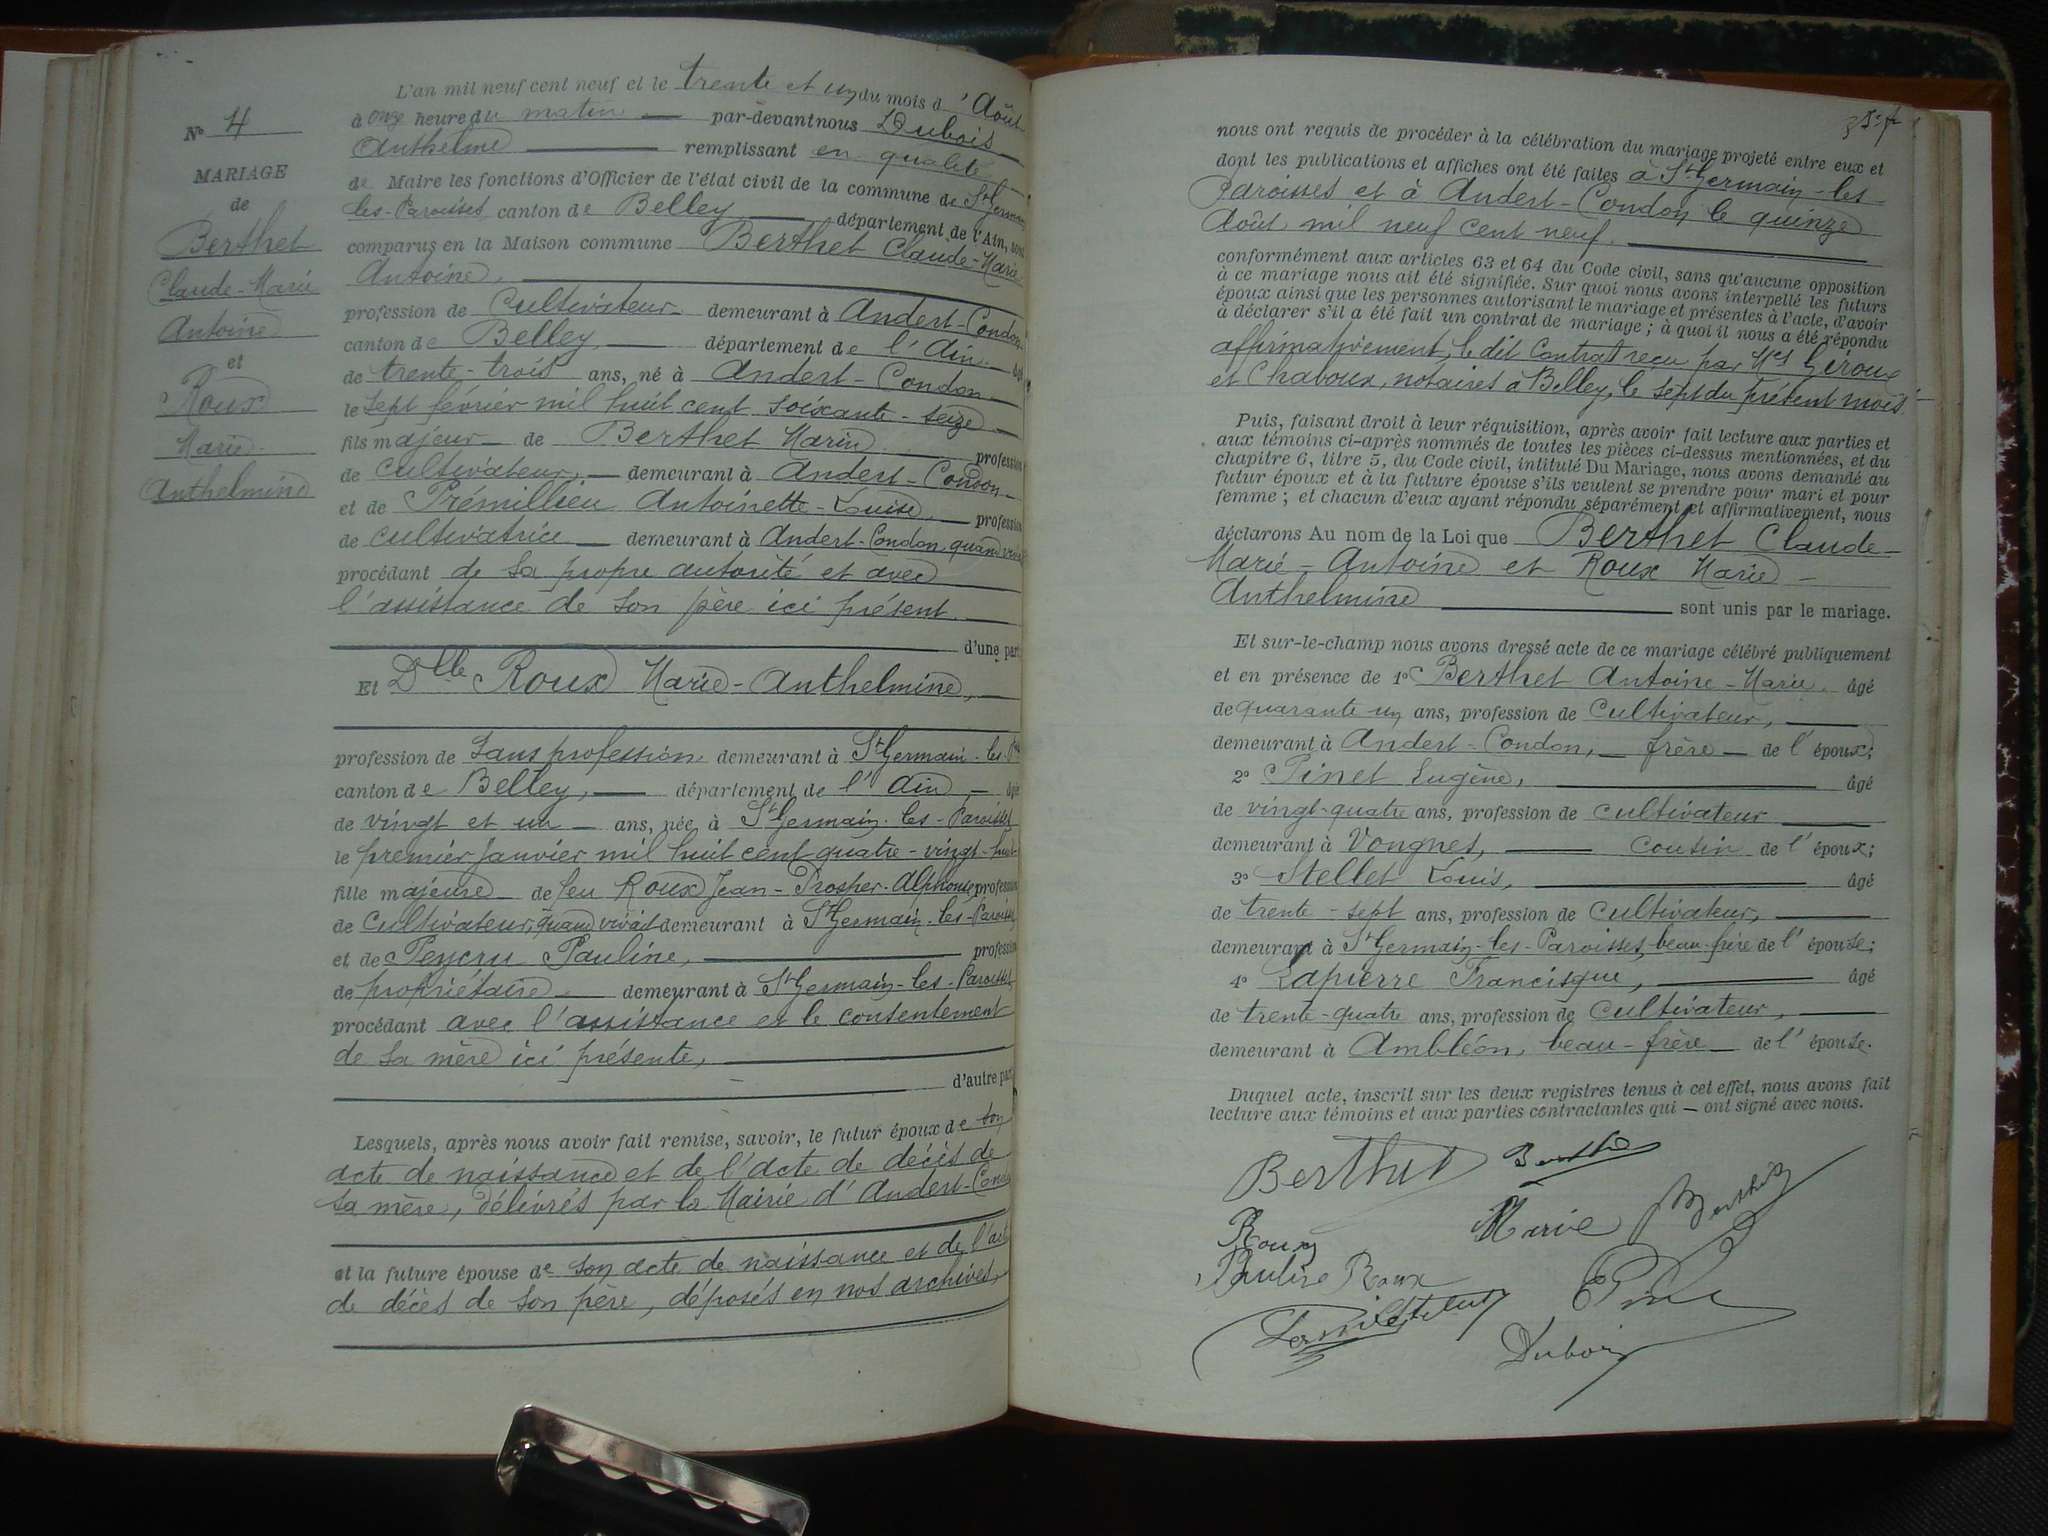 L'an mil neuf cent neuf et le trente et un du mois d'Août
Nº 4
à onze heure du matin par-devant nous Dubois
Anthelme remplissant en qualité
MARIAGE
de Maire les fonctions d'Officier de l'état civil de la commune de St Germain
de
les-Paroisses canton de Belley département de l'Ain, sont
Berthet
comparus en la Maison commune Berthet Claude-Marie
Claude-Marie
Antoine,
Antoine
profession de Cultivateur demeurant à Andert-Condon
et
canton de Belley département de l'Ain âgé
Roux
de trente-trois ans, né à Andert-Condon
le sept février mil huit cent soixante-seize
Marie
fils majeur de Berthet Marin profession
Anthelmine
de cultivateur, demeurant à Andert-Condon
et de Prémillieu Antoinette-Louise, profession
de cultivatrice demeurant à Andert-Condon, quand vivait
procédant de sa propre autorité et avec
l'assistance de son père ici présent
d'une part
Et Dlle Roux Marie-Anthelmine,
profession de sans profession, demeurant à St Germain-les-
canton de Belley, département de l'Ain, âgée
de vingt et un ans, née à St Germain-les-Paroisses
le premier Janvier mil huit cent quatre-vingt-huit
fille majeure de feu Roux Jean-Prosper-Alphonse, profession
de Cultivateur, quand vivait demeurant à St Germain-les-Paroisses
et de Peycru Pauline, profession
de propriétaire demeurant à St Germain-les-Paroisses
procédant avec l'assistance et le consentement
de sa mère ici présente,
d'autre part
Lesquels, après nous avoir fait remise, savoir, le futur époux de son
acte de naissance et de l'acte de décès de
sa mère, délivrés par la Mairie d'Andert-Condon
et la future épouse de son acte de naissance et de l'acte
de décès de son père, déposés en nos archives,
nous ont requis de procéder à la célébration du mariage projeté entre eux et
dont les publications et affiches ont été faites à St Germain-les-
Paroisses et à Andert-Condon le quinze
Août mil neuf cent neuf.
conformément aux articles 63 et 64 du Code civil, sans qu'aucune opposition
à ce mariage nous ait été signifiée. Sur quoi nous avons interpellé les futurs
époux ainsi que les personnes autorisant le mariage et présentes à l'acte, d'avoir
à déclarer s'il a été fait un contrat de mariage ; à quoi il nous a été répondu
affirmativement, le dit Contrat reçu par Mes Géroux
et Chaboux, notaires à Belley, le sept du présent mois.
Puis, faisant droit à leur réquisition, après avoir fait lecture aux parties et
aux témoins ci-après nommés de toutes les pièces ci-dessus mentionnées, et du
chapitre 6, titre 5, du Code civil, intitulé Du Mariage, nous avons demandé au
futur époux et à la future épouse s'ils veulent se prendre pour mari et pour
femme ; et chacun d'eux ayant répondu séparément et affirmativement, nous
déclarons Au nom de la Loi que Berthet Claude-
Marie-Antoine et Roux Marie-
Anthelmine sont unis par le mariage.
Et sur-le-champ nous avons dressé acte de ce mariage célébré publiquement
et en présence de 1º Berthet Antoine-Marie, âgé
de quarante un ans, profession de Cultivateur,
demeurant à Andert-Condon, frère de l'époux;
2º Pinet Eugène, âgé
de vingt-quatre ans, profession de cultivateur
demeurant à Vongnes, cousin de l'époux;
3º Stellet Louis, âgé
de trente-sept ans, profession de Cultivateur,
demeurant à St Germain-les-Paroisses, beau-frère de l'épouse;
4º Lapierre Francisque, âgé
de trente-quatre ans, profession de Cultivateur,
demeurant à Ambléon, beau-frère de l'épouse.
Duquel acte, inscrit sur les deux registres tenus à cet effet, nous avons fait
lecture aux témoins et aux parties contractantes qui — ont signé avec nous.
Berthet Berthet
Roux Marie Berthet
Pauline Roux
Dubois